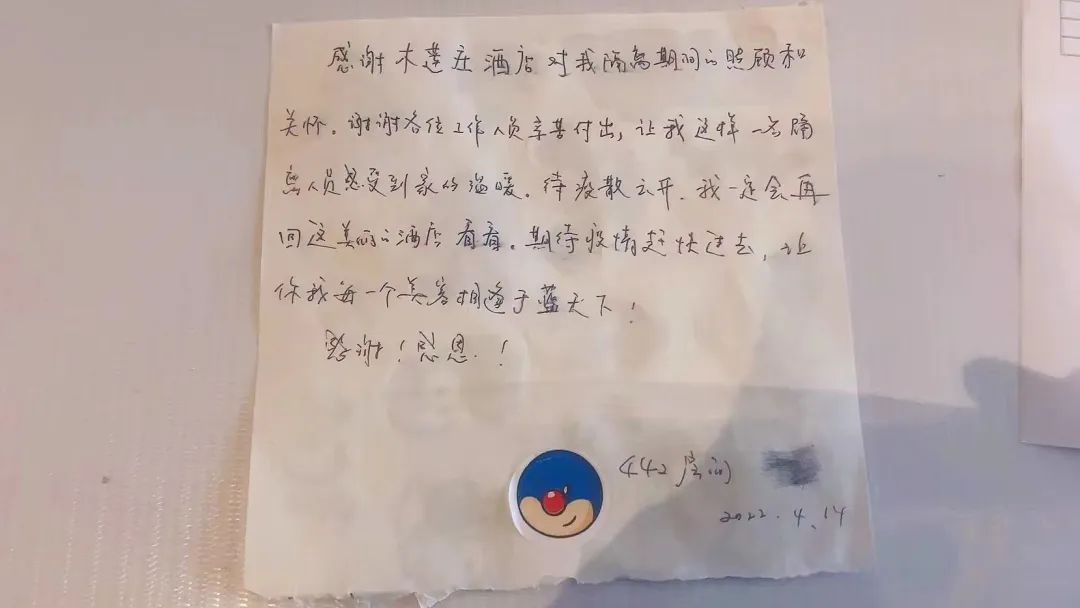 感谢木莲庄酒店对我隔离期间的照顾和
关怀。谢谢各位工作人员辛苦付出,让我这样一名隔
离人员感受到家的温暖。待疫散云开,我一定会再
回这美丽的酒店看看。期待疫情赶快过去,让
你我每一个美善相逢于蓝天下!
感谢!感恩!
442房间
2022.4.14